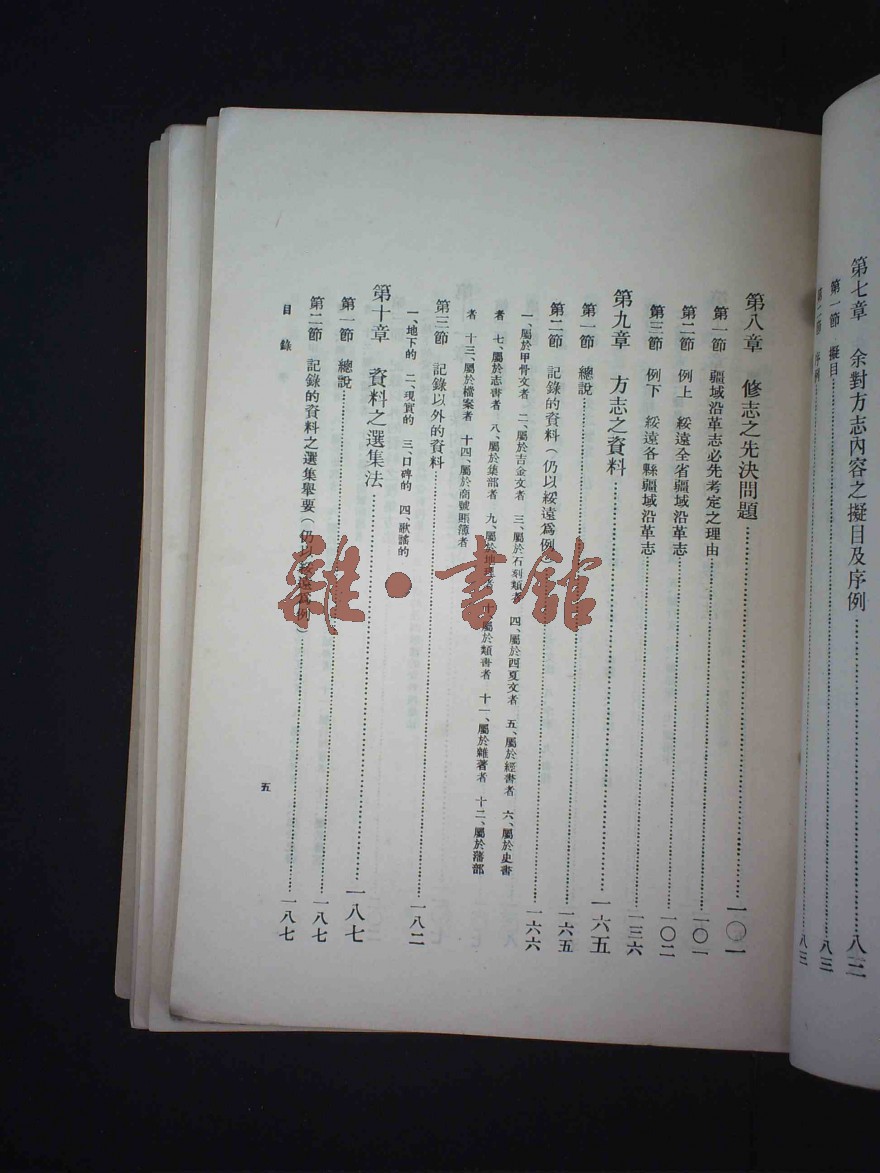 第七章 余對方志內容之擬目及序例……八三
第一節 擬目……八三
第二節 序例……八三
第八章 修志之先決問題……一〇一
第一節 疆域沿革志必先考定之理由……一〇一
第二節 例上 綏遠全省疆域沿革志……一〇二
第三節 例下 綏遠各縣疆域沿革志……一三六
第九章 方志之資料……一六五
第一節 總說……一六五
第二節 記錄的資料(仍以綏遠爲例)……一六六
一、屬於甲骨文者 二、屬於吉金文者 三、屬於石刻類者 四、屬於西夏文者 五、屬於經書者 六、屬於史書
者 七、屬於志書者 八、屬於集部者 九、屬於地理者 十、屬於類書者 十一、屬於雜著者 十二、屬於藩部
者 十三、屬於檔案者 十四、屬於商號賬簿者
第三節 記錄以外的資料……一八二
一、地下的 二、現實的 三、口碑的 四、歌謠的
第十章 資料之選集法……一八七
第一節 總說……一八七
第二節 記錄的資料之選集舉要(仍以綏遠爲例)……一八七
目錄
五
雜·書館